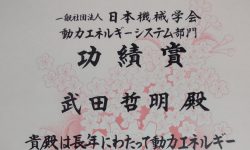 一般社団法人 日本機械学会
動力エネルギーシステム部門
功績賞
武田哲明 殿
貴殿は長年にわたって動力エネルギー